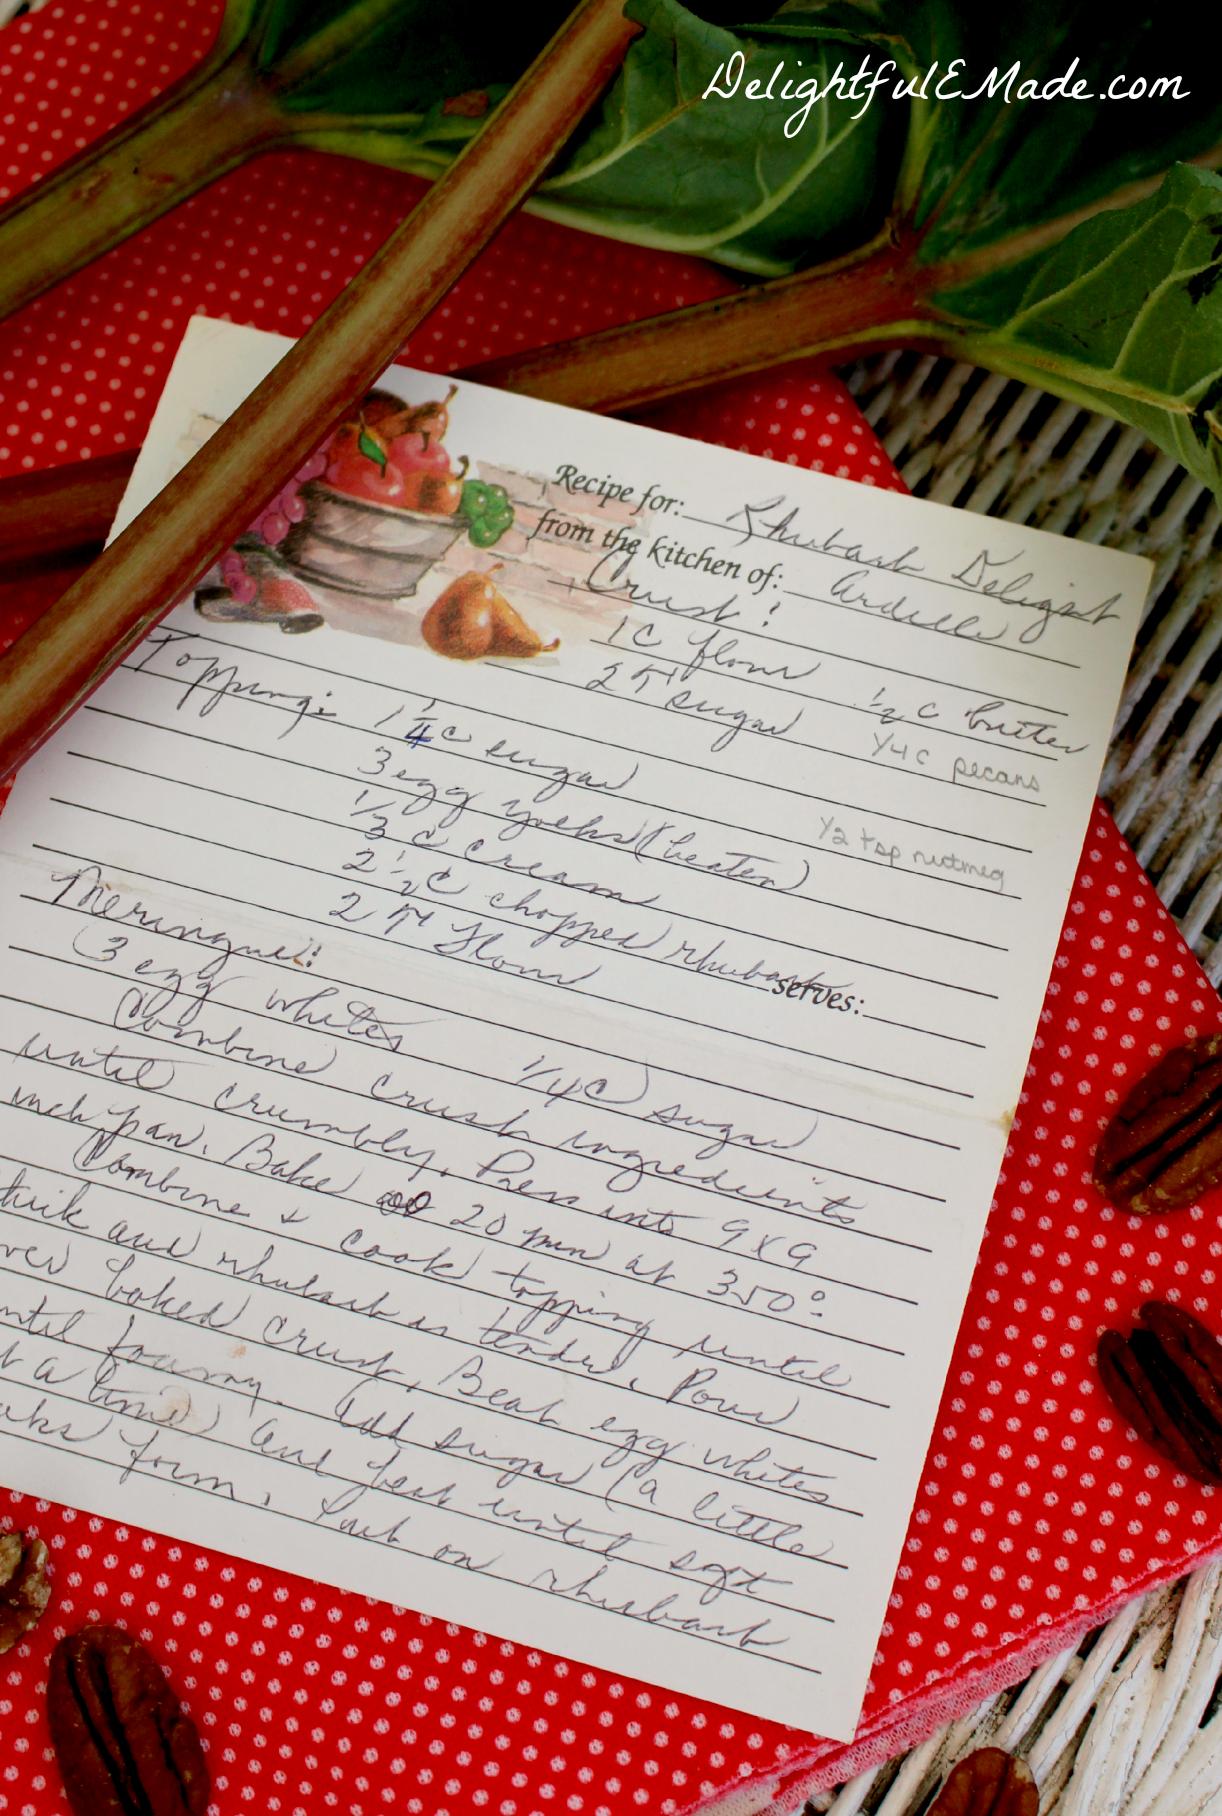 DelightfulEMade.com
Recipe for: Rhubarb Delight
from the kitchen of: Ardelle
Crust:
1 c flour ½ c butter
2 T sugar ¼ c pecans
Topping: 1 ¼ c sugar
3 egg yolks (beaten) ½ tsp nutmeg
⅓ c cream
2 ½ c chopped rhubarb
2 T flour
serves:
Meringue:
(3 egg whites ¼ c) sugar
Combine crust ingredients
until crumbly. Press into 9x9
inch pan. Bake 20 min at 350°
Combine & cook topping until
thick and rhubarb is tender. Pour
over baked crust. Beat egg whites
until foamy. Add sugar (a little
at a time) and beat until soft
peaks form. Put on rhubarb